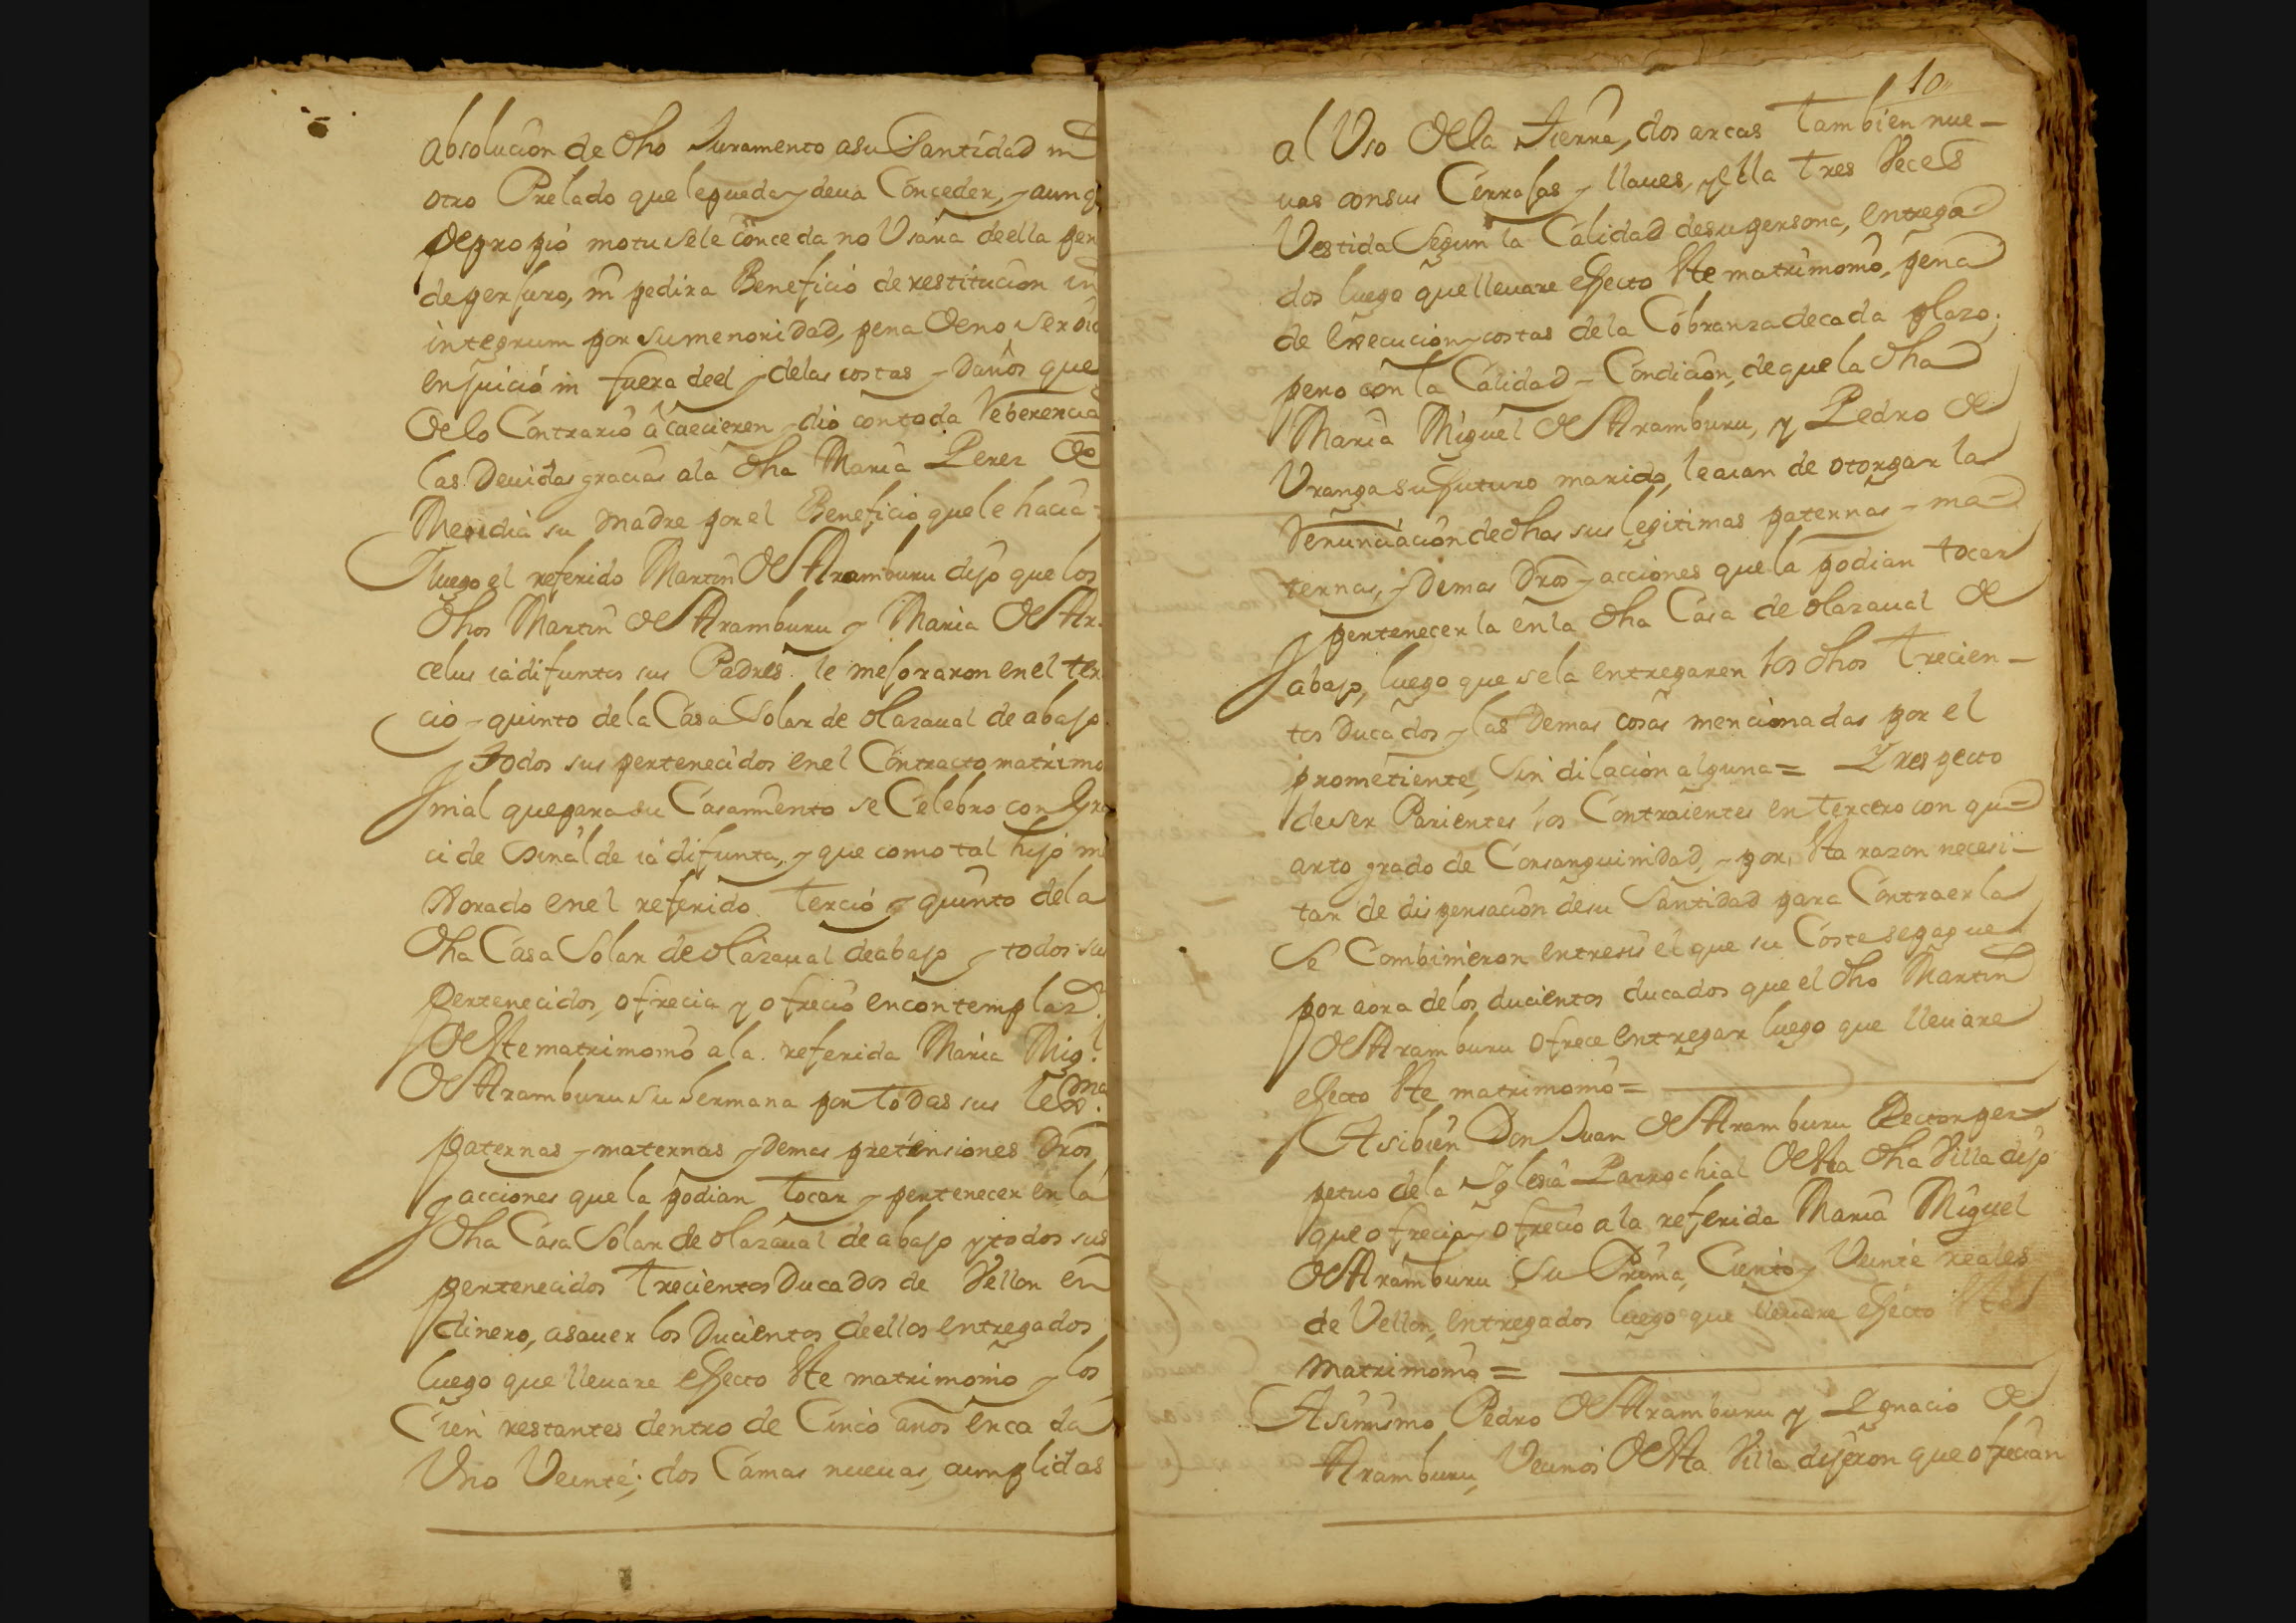 absolucion de dho Juramento a su Santidad ni
otro Prelado que le pueda y deua Conceder, y aunq
de propio motu se le conceda no Usara de ella pen
de perjuro, ni pedira Beneficio de restitucion in
integrum por su menoridad, pena de no ser oid
en juicio ni fuera de el y de las costas y Daños que
de lo Contrario acaecieren y dio con toda Reberencia
las Deuidas gracias a la dha Maria Perez de
su Madre por el Beneficio que le hacia
Y luego el referido Martin de Aramburu dijo que los
dhos Martin de Aramburu y Maria de Ar
celus ia difuntos sus Padres le mejoraron en el ter
cio y quinto de la Casa Solar de olazaual de abajo
y todos sus pertenecidos en el Contracto matrimo
nial que para su Casamiento se Celebro con Gra
ci de ia difunta, y que como tal hijo me
jorado en el referido Tercio y quinto de la
dha Casa Solar de olazaual de abajo y todos sus
pertenecidos, ofrecia y ofrecio en contemplaz.
de este matrimonio a la referida Maria Mig.l
de Aramburu su hermana por todas sus
paternas y maternas y Demas pretensiones Dros
y acciones que la podian tocar y pertenecer en la
dha Casa Solar de olazaual de abajo y todos sus
pertenecidos Trecientos Ducados de Vellon en
dinero, a sauer los Ducientos de ellos entregados
luego que lleuare efecto este matrimonio y los
Cien restantes dentro de Cinco años en ca da
Uno Veinte; dos Camas nueuas, cumplidas
10
al Uso de la Tierra, dos arcas Tambien nue-
uas con sus Cerrajas y llaues, y ella Tres Veces
Vestida Segun la Calidad de su persona, entrega
dos luego que lleuare efecto este matrimonio, pena
de execucion y costas de la Cobranza de cada plazo;
pero con la Calidad y Condicion, de que la dha
Maria Miguel de Aramburu, y Pedro de
Uranga su futuro marido, le aian de otorgar la
Renunciacion de dhas sus legitimas paternas y ma
ternas, y Demas Dros y acciones que la podian tocar
y pertenecer la en la dha Casa de olazaual de
abajo, luego que se la entregaren los dhos Trecien-
tos Ducados y las Demas cosas mencionadas por el
prometiente, Sin dilacion alguna = Y respecto
de ser Parientes los Contraientes en tercero con qu
arto grado de Consanguinidad, y por esta razon necesi-
tar de dispensacion de su Santidad para Contraerla
Se Combinieron entre si el que su Coste se pague
por aora de los ducientos ducados que el dho Martin
de Aramburu ofrece entregar luego que lleuare
efecto este matrimonio =
Asi bien Don Juan de Aramburu Rector per
petuo de la Iglesia Parrochial de esta dha Villa dijo
que ofrecia y ofrecio a la referida Maria Miguel
de Aramburu Su Prima, Ciento y Veinte reales
de Vellon, entregados luego que lleuare efecto este
matrimonio =
Asimismo Pedro de Aramburu y Ignacio de
Aramburu, Vecinos de esta Villa dijeron que ofrecian